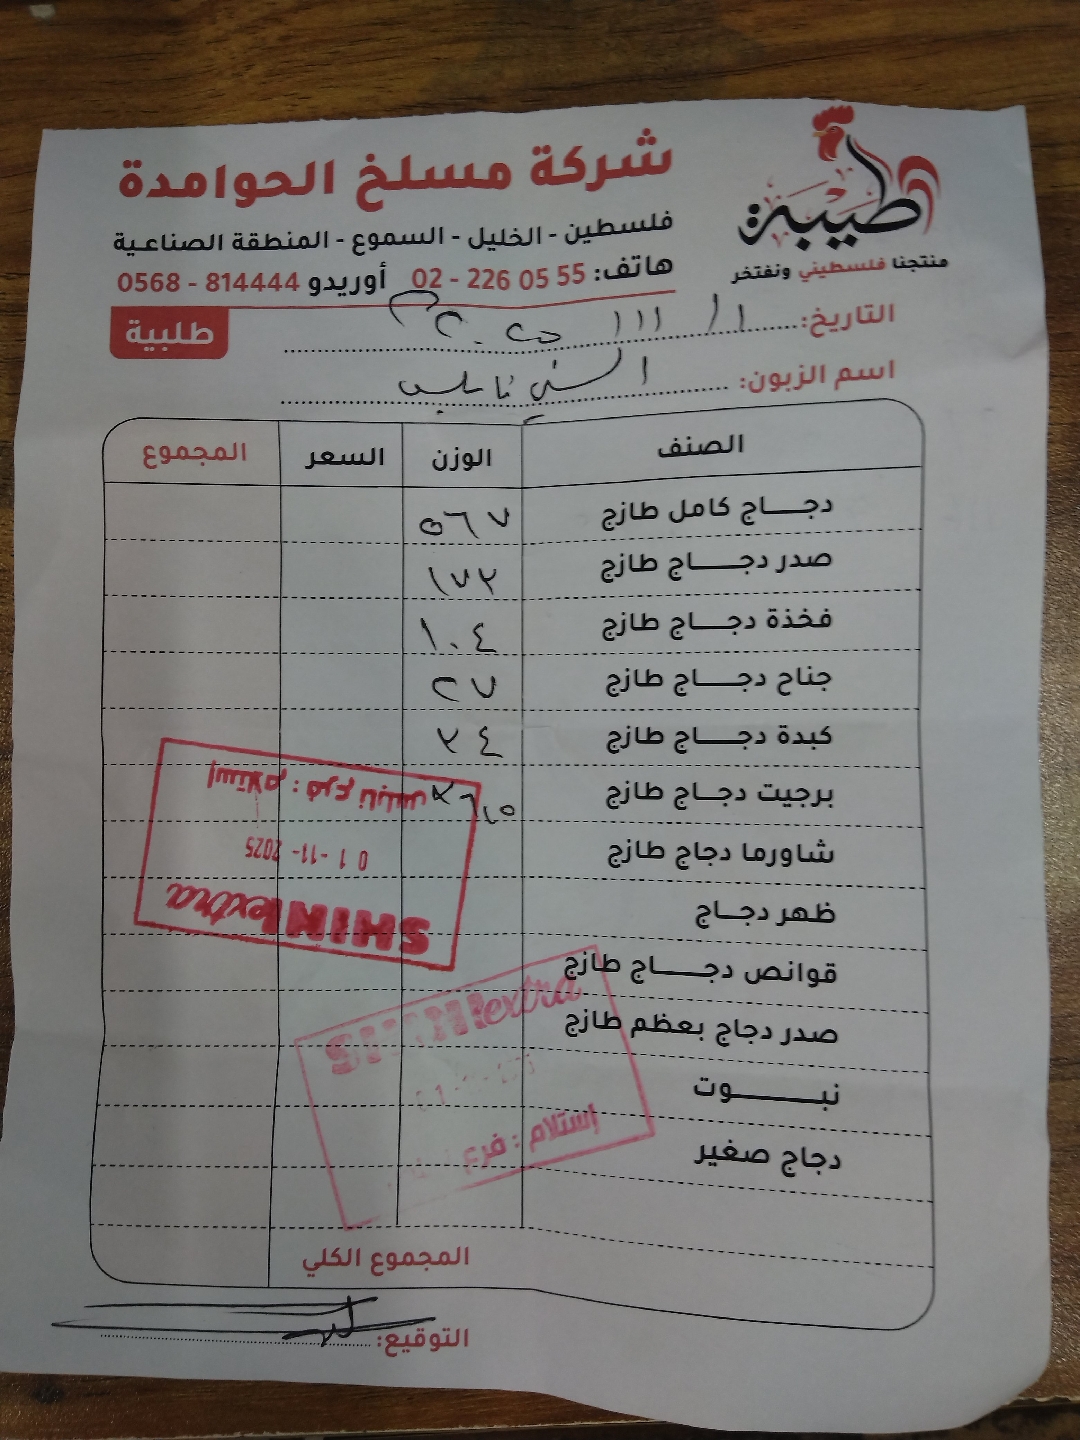 طيبة
منتجنا فلسطيني ونفتخر
شركة مسلخ الحوامدة
فلسطين - الخليل - السموع - المنطقة الصناعية
هاتف: 02 - 226 05 55 أوريدو 0568 - 814444
طلبية
التاريخ:
اسم الزبون: الشني نابلس
الصنف الوزن السعر المجموع
دجاج كامل طازج ٥٦٧
صدر دجاج طازج ١٧٢
فخذة دجاج طازج ١٠٤
جناح دجاج طازج ٢٧
كبدة دجاج طازج ٢٤
برجيت دجاج طازج
شاورما دجاج طازج
ظهر دجاج
قوانص دجاج طازج
صدر دجاج بعظم طازج
نبوت
دجاج صغير
المجموع الكلي
التوقيع:
SHINI extra
01-11-2025
إستلام : فرع نابلس
SHINI extra
إستلام : فرع